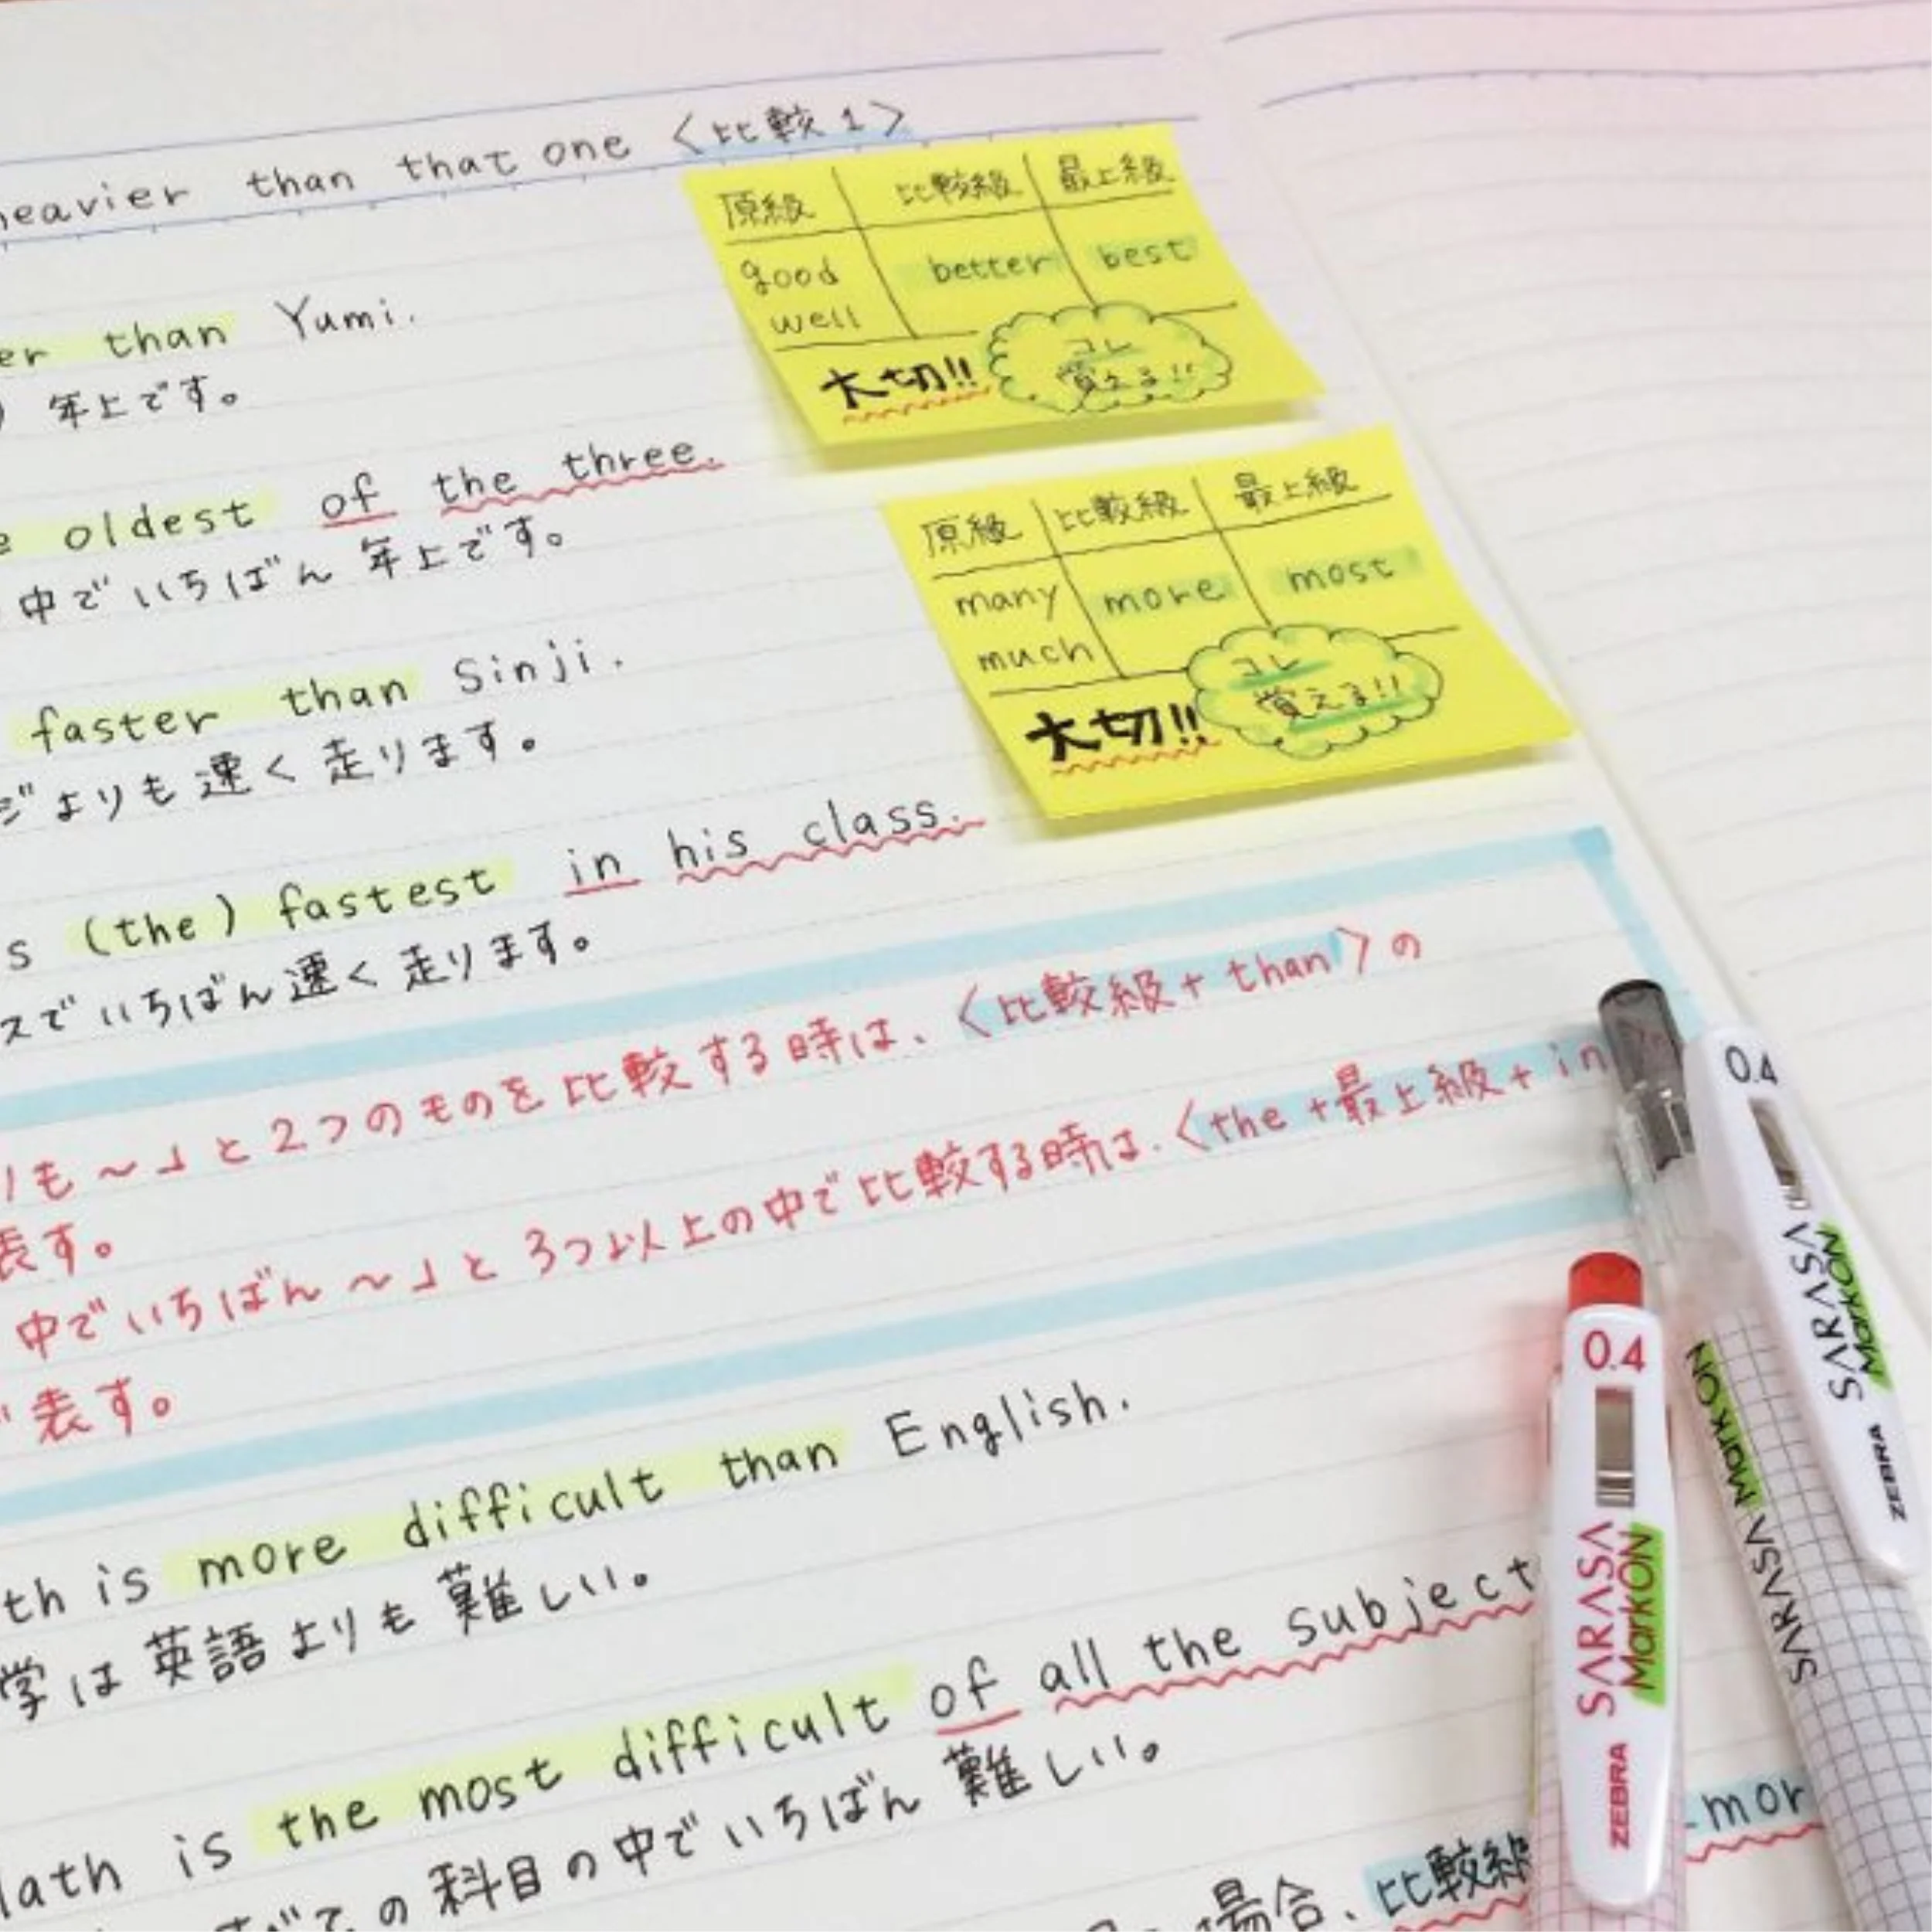 heavier than that one 〈比較1〉
than Yumi.
年上です。
oldest of the three.
中でいちばん 年上です。
faster than Sinji.
ジよりも速く走ります。
(the) fastest in his class.
スでいちばん速く走ります。
原級 比較級 最上級
good better best
well
大切!! コレ
覚える!!
原級 比較級 最上級
many more most
much
大切!! コレ
覚える!!
も〜」と2つのものを比較する時は、〈比較級+than〉の
表す。
中でいちばん〜」と3つ以上の中で比較する時は、〈the+最上級+in
表す。
is more difficult than English.
学は英語よりも難しい。
is the most difficult of all the subject
の科目の中でいちばん難しい。
場合、比較級 mor
0.4 SARASA MarkON ZEBRA
SARASA MarkON
0.4 SARASA MarkON ZEBRA